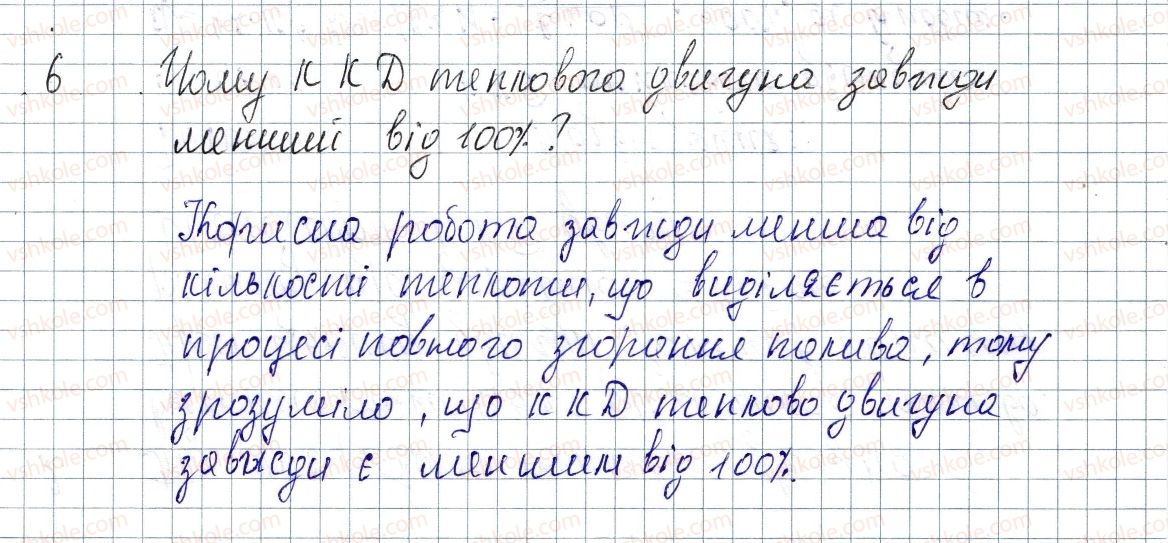 6 Чому ККД теплового двигуна завжди
менший від 100%?
Корисна робота завжди менша від
кількості теплоти, що виділяється в
процесі повного згорання палива, тому
зрозуміло, що ККД теплово двигуна
завжди є меншим від 100%.